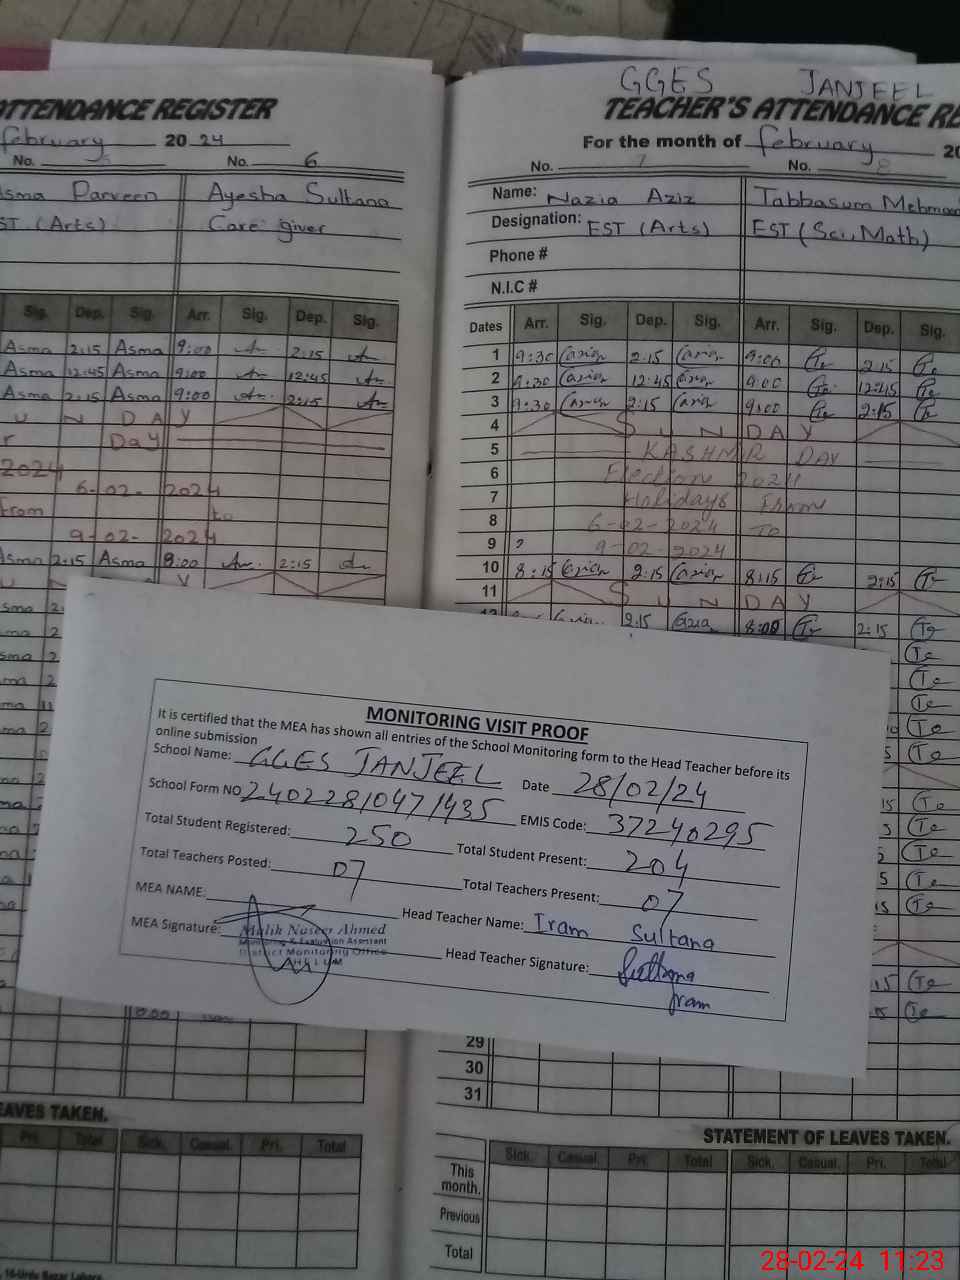 GGES JANJEEL
ATTENDANCE REGISTER
february 20 24
No. 5 No. 6
Asma Parveen Ayesha Sultana
EST (Arts) Care giver
Sig. Dep. Sig. Arr. Sig. Dep. Sig.
Asma 2:15 Asma 9:00 2:15
Asma 12:45 Asma 9:00 12:45
Asma 2:15 Asma 9:00 2:15
U N D A Y
r Day
2024
6-02- 2024
from to
9-02- 2024
Asma 2:15 Asma 9:00 2:15
TEACHER'S ATTENDANCE RE
For the month of february 20
No. 7 No. 8
Name: Nazia Aziz Tabbasum Mehmood
Designation: EST (Arts) EST (Sci, Math)
Phone #
N.I.C #
Dates Arr. Sig. Dep. Sig. Arr. Sig. Dep. Sig.
1 9:30 2:15 9:00 2:15
2 9:30 12:45 9:00 12:45
3 9:30 2:15 9:00 2:15
4 S U N D A Y
5 KASHMIR DAY
6 Election 2024
7 Holidays From
8 6-02-2024 TO
9 9-02-2024
10 8:15 2:15 8:15 2:15
11 S U N D A Y
12 2:15 8:00 2:15
MONITORING VISIT PROOF
It is certified that the MEA has shown all entries of the School Monitoring form to the Head Teacher before its
online submission
School Name: GGES JANJEEL Date 28/02/24
School Form NO 240228/047/435 EMIS Code: 37240295
Total Student Registered: 250 Total Student Present: 204
Total Teachers Posted: 07 Total Teachers Present: 07
MEA NAME: Head Teacher Name: Iram Sultana
MEA Signature: Malik Naseer Ahmed
Monitoring & Evaluation Assistant
District Monitoring Office
JHELUM
Head Teacher Signature: Sultana
Iram
29
30
31
LEAVES TAKEN.
Pri. Total Sick. Casual. Pri. Total
STATEMENT OF LEAVES TAKEN.
Sick. Casual. Pri. Total Sick. Casual. Pri. Total
This
month.
Previous
Total
16-Urdu Bazar Lahore
28-02-24 11:23